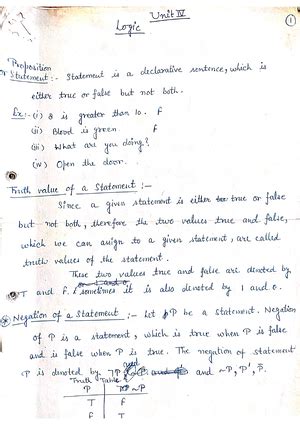 Unit IV
①
Logic
Proposition
or Statement :- Statement is a declarative sentence, which is
either true or false but not both.
Ex:- (i) 8 is greater than 10. F
(ii) Blood is green. F
(iii) What are you doing?
(iv) Open the door.
Truth value of a Statement :-
Since a given statement is either true or false
but not both, therefore the two values true and false,
which we can assign to a given statement, are called
truth values of the statement.
These two values true and false are denoted by
T and F. Sometimes it is also denoted by 1 and 0.
Negation of a Statement :- Let P be a statement. Negation
of P is a statement, which is true when P is false
and is false when P is true. The negation of statement
P is denoted by ¬P and ~P, P', P̄.
Truth Table
P ~P
T F
F T